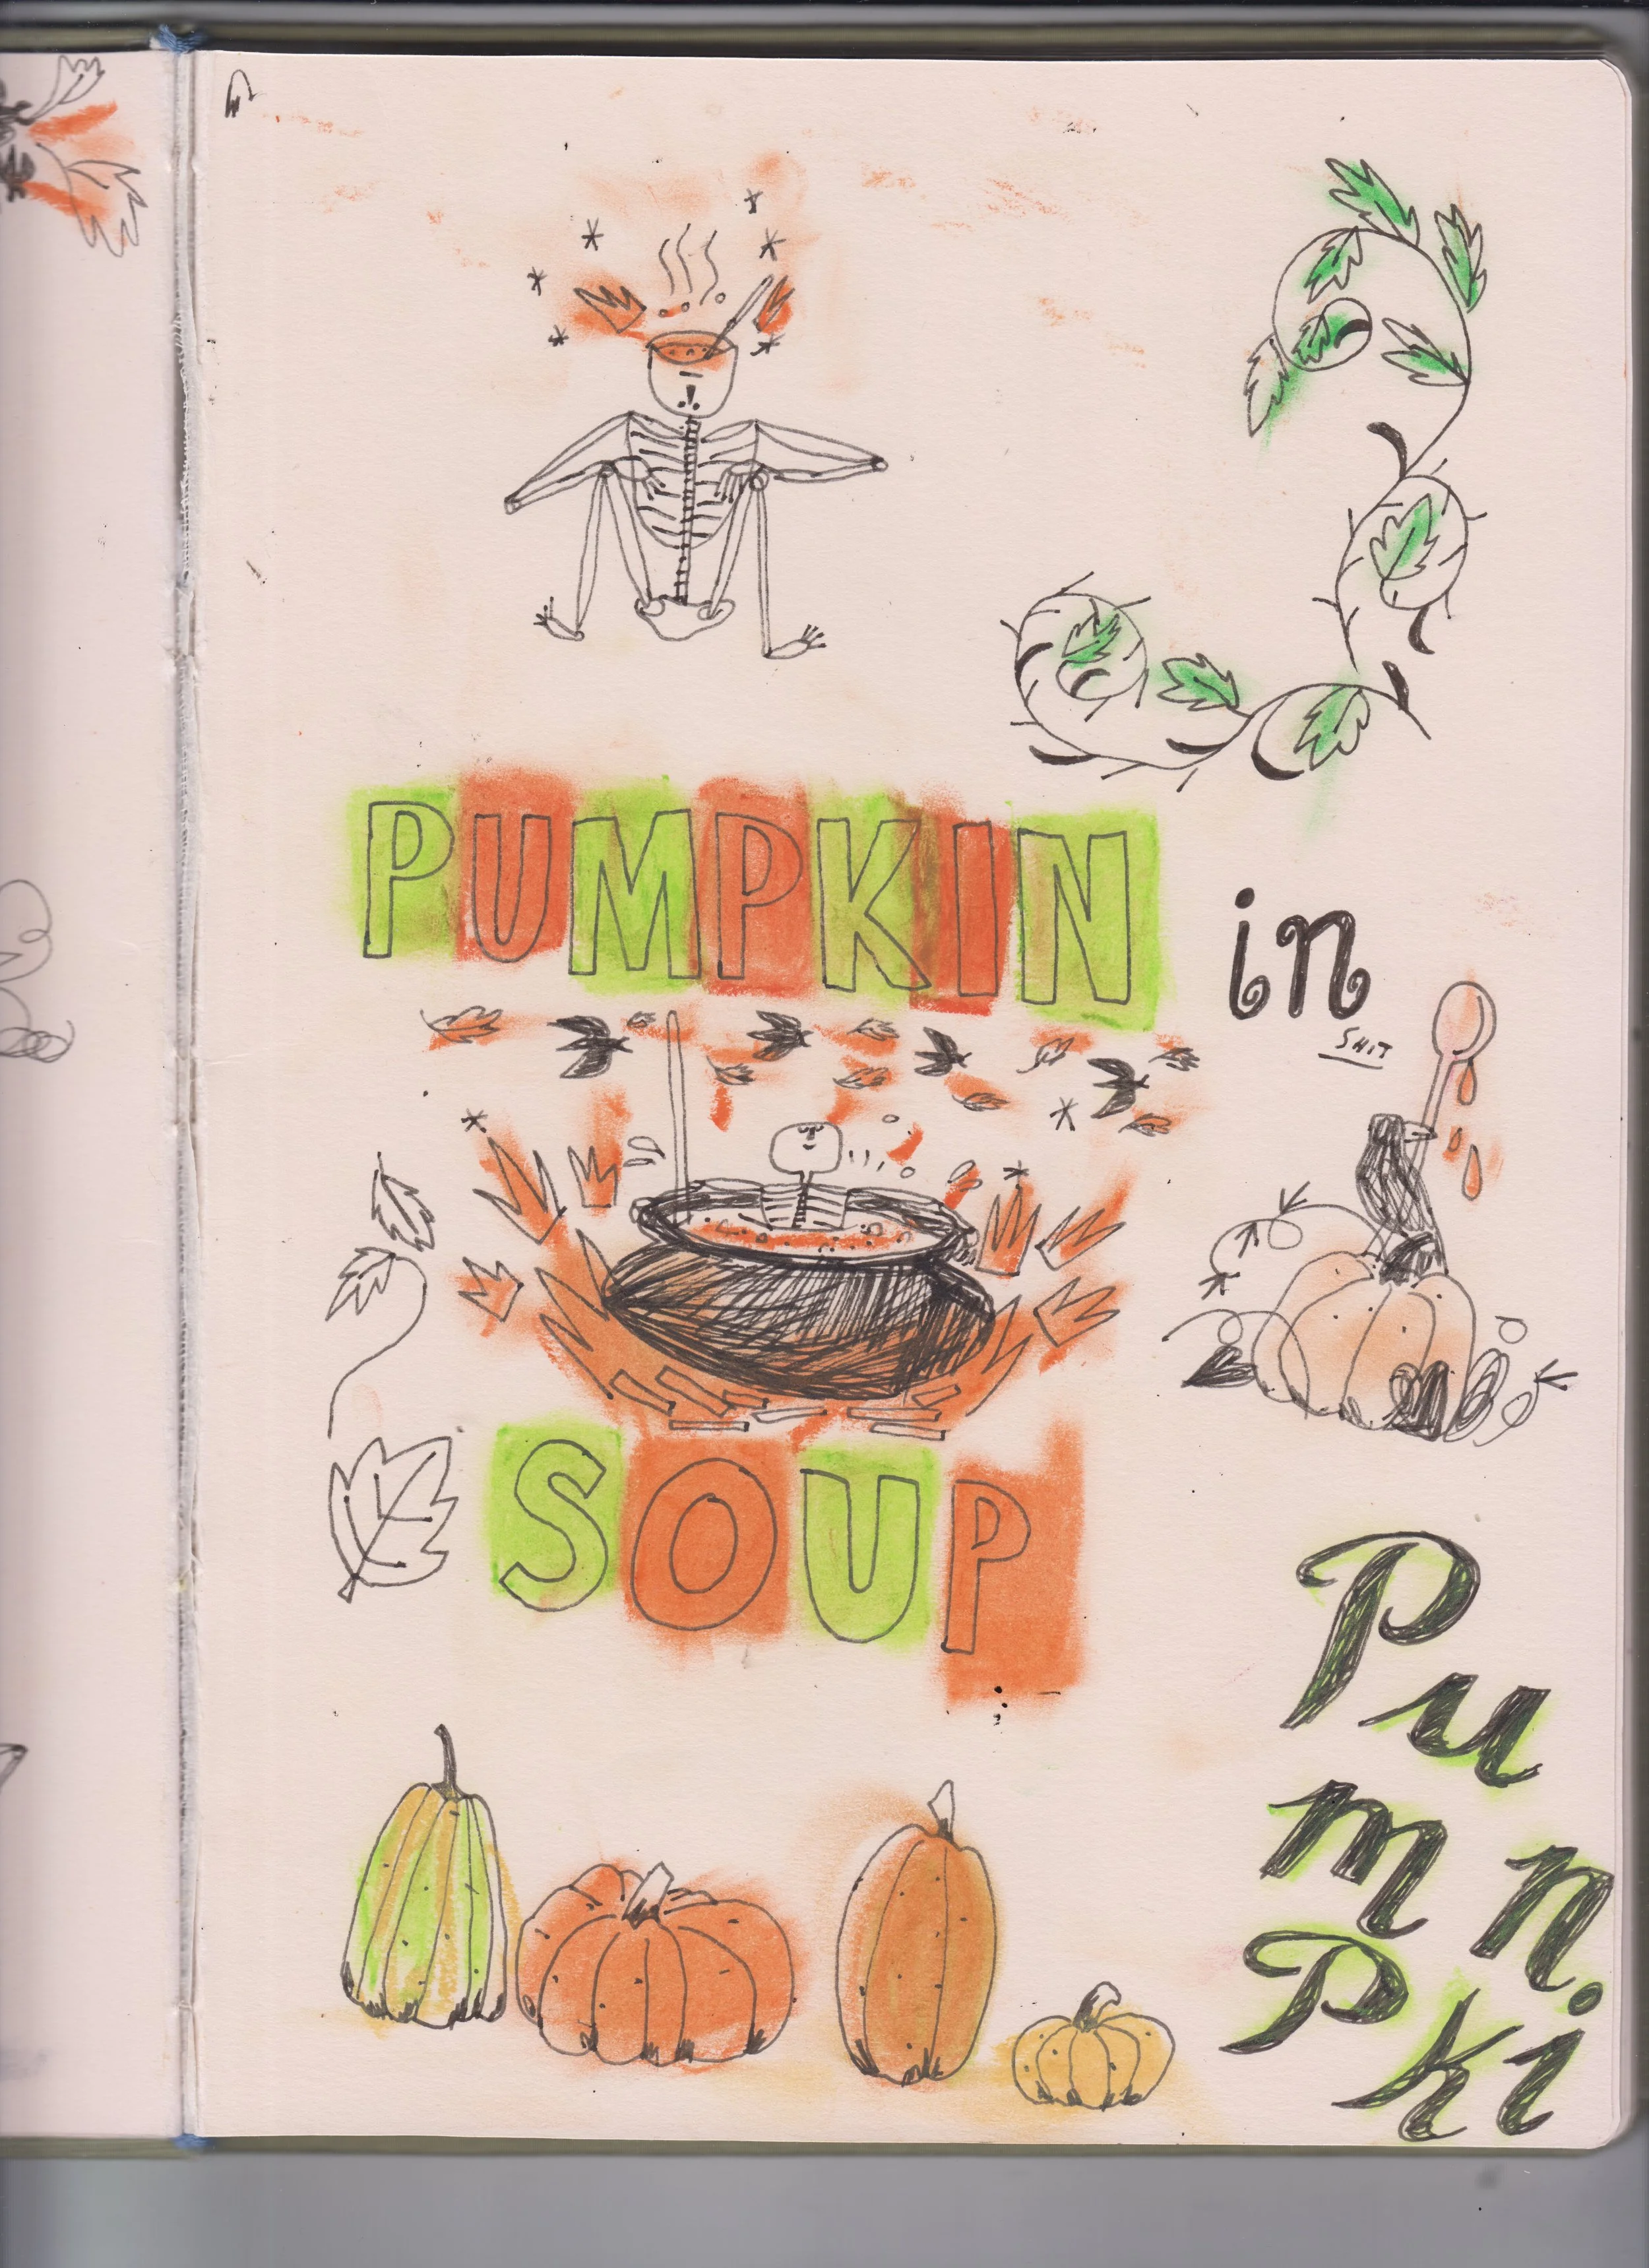 PUMPKIN
in
SHIT
SOUP
Pu
mn.
Pki